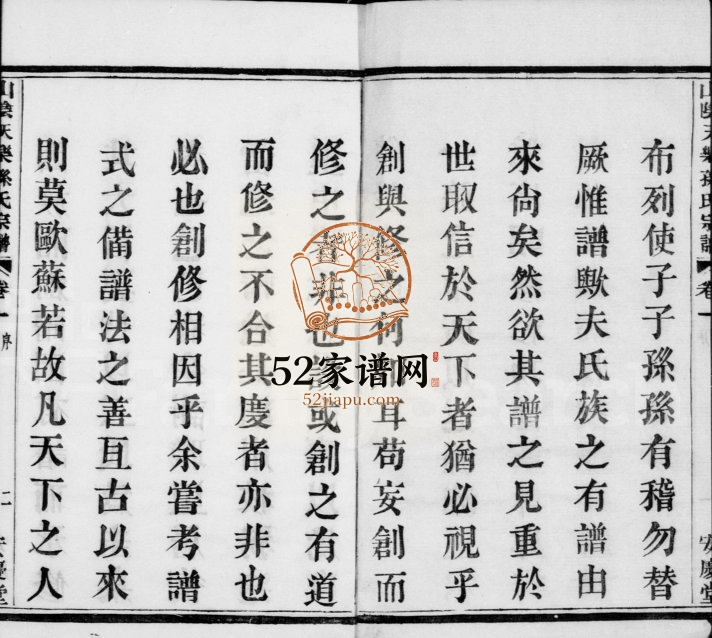 山陰天樂孫氏宗譜 卷一
布列使子子孫孫有稽勿替
厥惟譜歟夫氏族之有譜由
來尙矣然欲其譜之見重於
世取信於天下者猶必視乎
創與修之何耳苟妄創而
修之者非也或創之有道
而修之不合其慶者亦非也
必也創修相因乎余嘗考譜
式之備譜法之善亙古以來
則莫歐蘇若故凡天下之人
山陰天樂孫氏宗譜 卷一 序 二 安慶堂
52家谱网
52jiapu.com